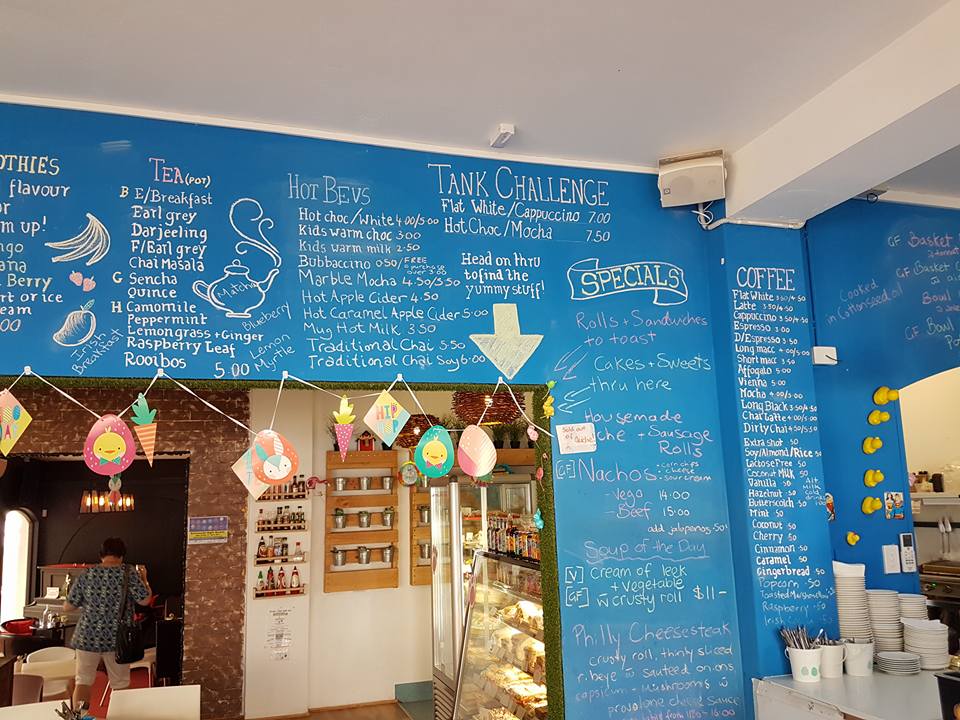 OTHIES
flavour
or
m up!
ngo
ana
Berry
rt or ice
eam
00
TEA (POT)
B E/Breakfast
Earl grey
Darjeeling
F/Earl grey
Chai Masala
G Sencha
Quince
H Camomile
Peppermint
Lemongrass + Ginger
Raspberry Leaf
Rooibos 5.00
Irish Breakfast
Matcha
Blueberry
Lemon Myrtle
HOT BEVS
Hot choc/White 4.00/5.00
Kids warm choc 3.00
Kids warm milk 2.50
Bubbaccino 0.50/FREE
purchase over 3.00
Marble Mocha 4.50/5.50
Hot Apple Cider 4.50
Hot Caramel Apple Cider 5.00
Mug Hot Milk 3.50
Traditional Chai 5.50
Traditional Chai Soy 6.00
TANK CHALLENGE
Flat White/Cappuccino 7.00
Hot Choc/Mocha 7.50
Head on thru
to find the
yummy stuff!
SPECIALS
Rolls + Sandwiches
to toast
Cakes + Sweets
thru here
Housemade
che + Sausage
Rolls
Sold out of Quiche!
GF Nachos : corn chips
: cheese
: sour cream
- Vego 14.00
- Beef 15.00
add jalapenos .50
Soup of the Day
V Cream of leek
+ vegetable
GF w crusty roll $11-
Philly Cheesesteak
crusty roll, thinly sliced
ribeye w sauteed onions
capsicum + mushrooms w
provolone cheese sauce
16.00
COFFEE
Flat White 3.50/4.50
Latte 3.50/4.50
Cappuccino 3.50/4.50
Espresso 3.00
D/Espresso 3.50
Long macc 4.00/5.00
Short macc 3.50
Affogato 5.00
Vienna 5.00
Mocha 4.00/5.00
Long Black 3.50/4.50
Chai Latte 4.00/5.00
Dirty Chai 4.50/5.50
Extra shot .50
Soy/Almond/Rice .50
Lactose Free .50
Coconut Milk .50
Vanilla .50
Hazelnut .50
Butterscotch .50
Mint .50
Coconut .50
Cherry .50
Cinnamon .50
Caramel .50
Gingerbread .50
Popcorn .50
Toasted Marshmallow
Raspberry .50
Irish
Alt
Milk
cold
drinks
1.00
Cooked
in Cottonseed oil
GF Basket
GF Basket
Bowl
GF Bowl
HIP